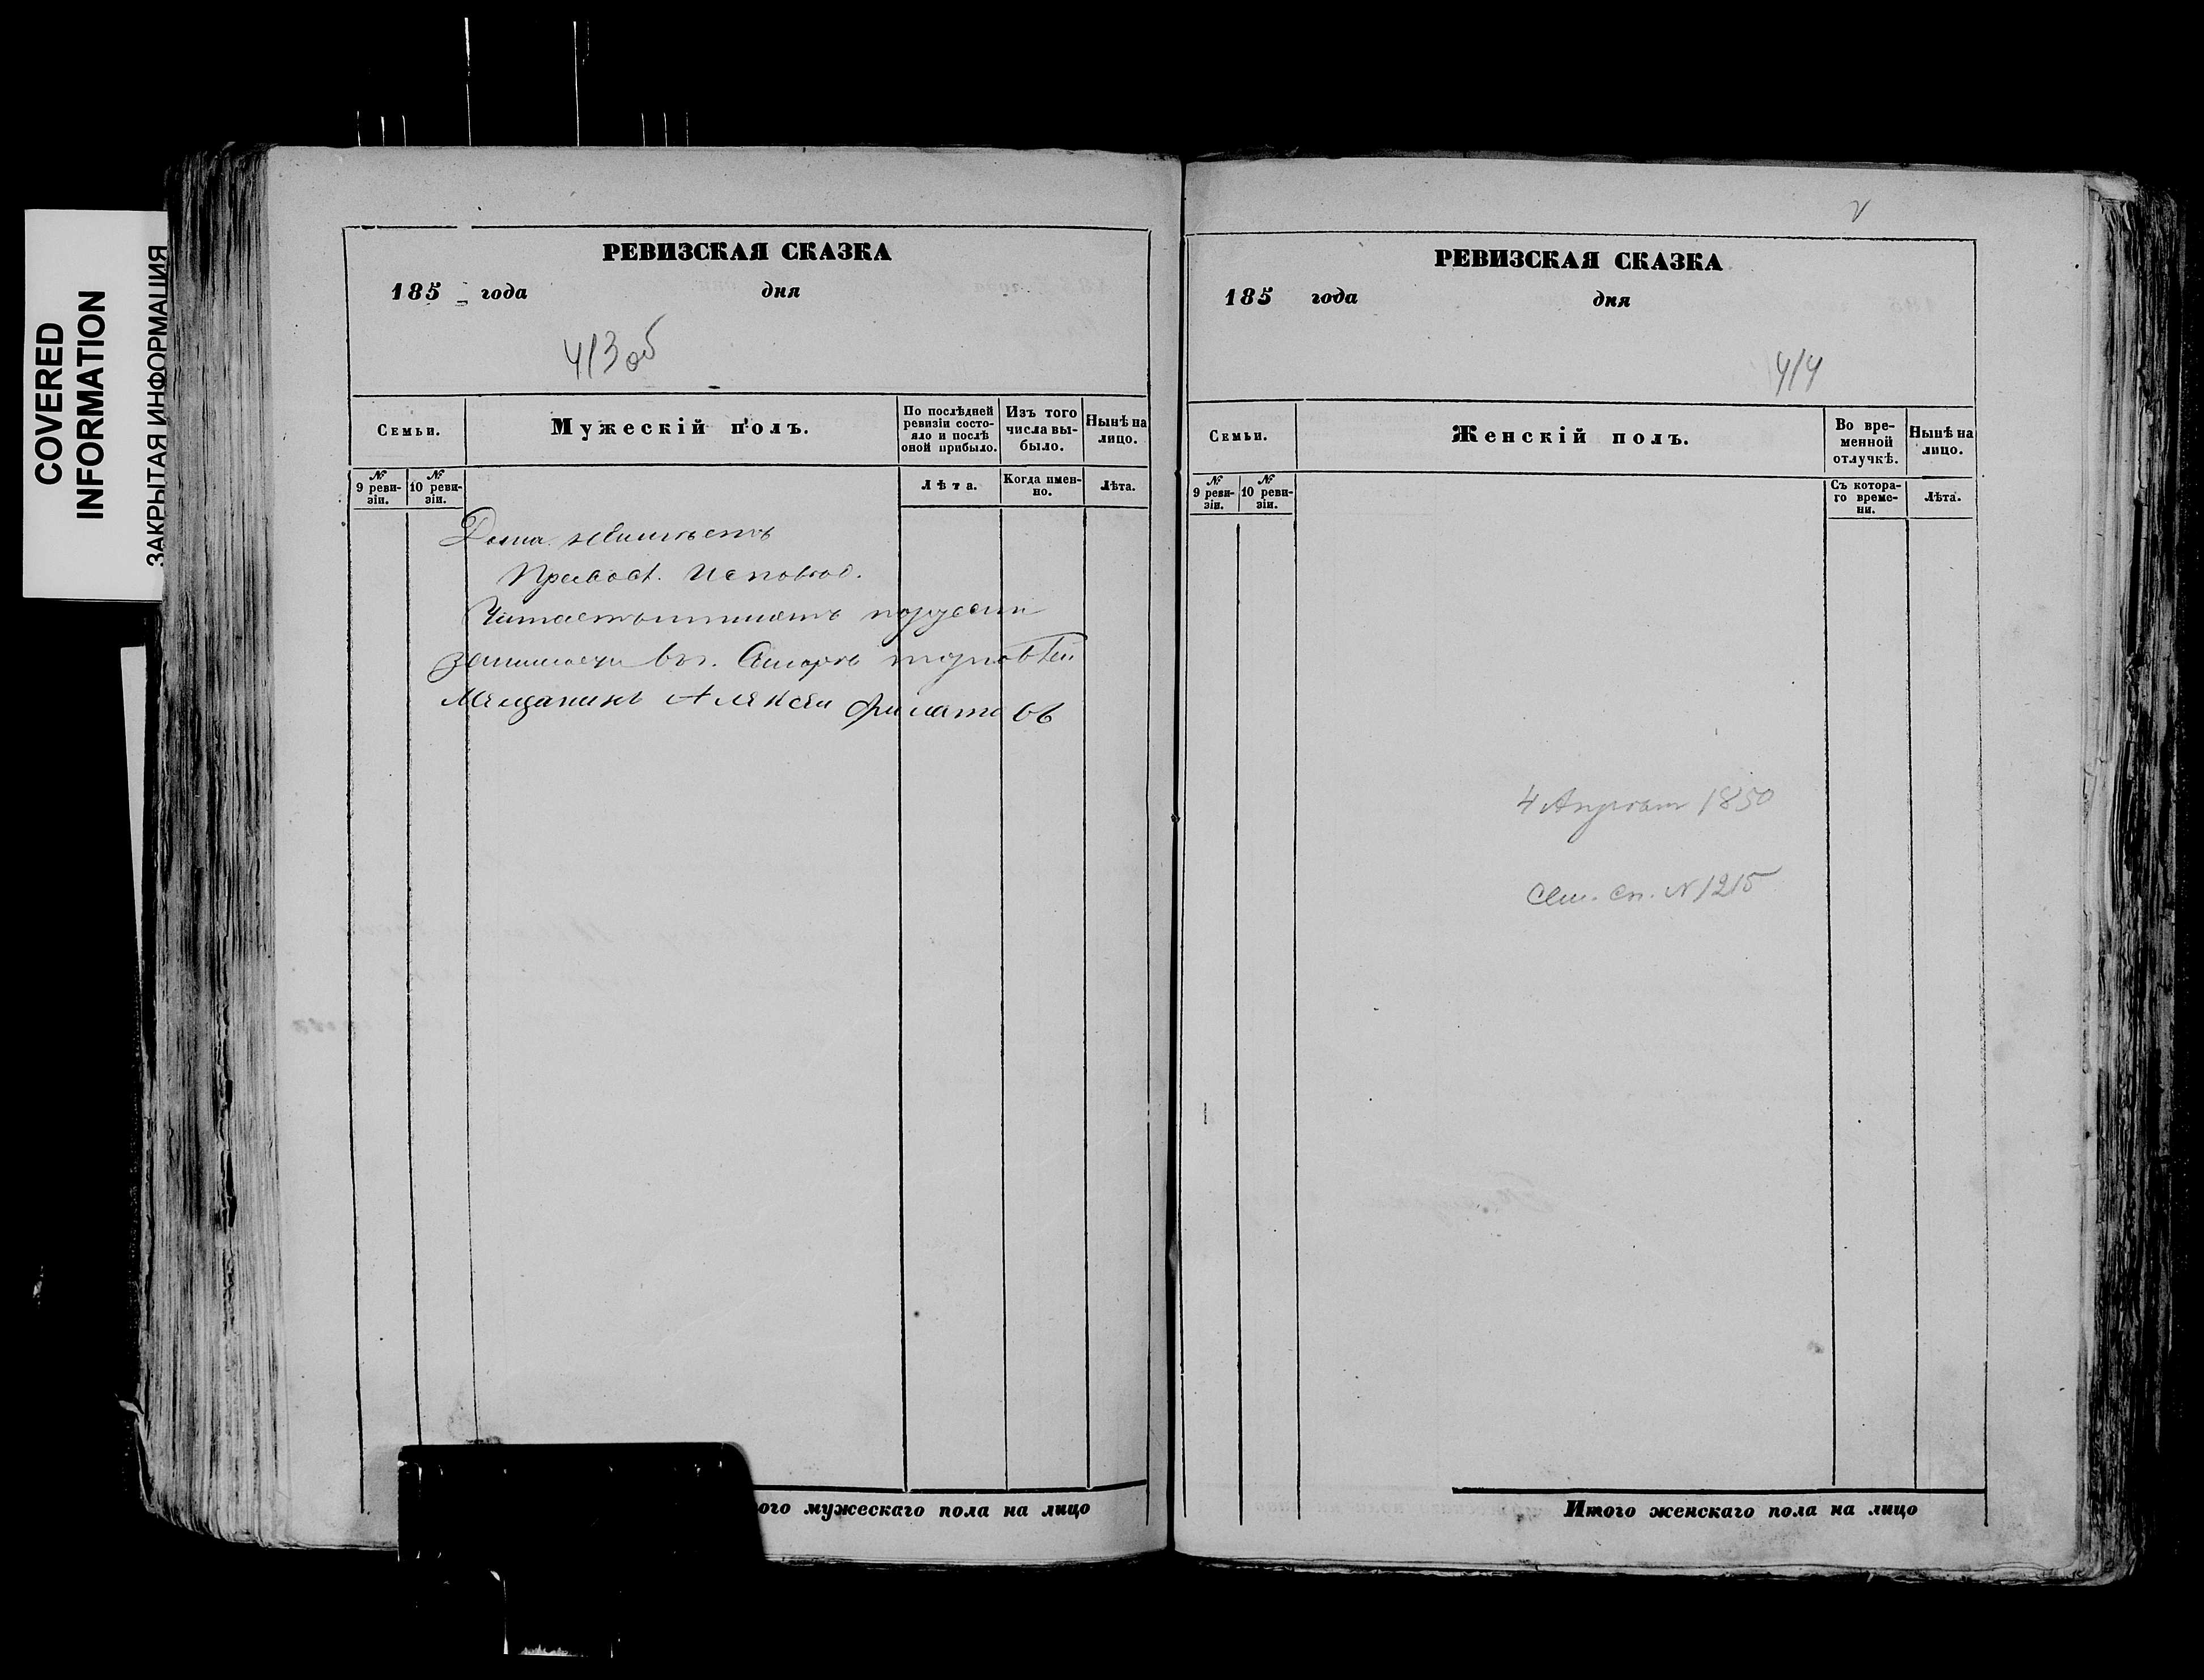 COVERED
INFORMATION
ЗАКРЫТАЯ ИНФОРМАЦИЯ
РЕВИЗСКАЯ СКАЗКА
185 года дня
413 об
Семьи.
Мужескій полъ.
По послѣдней ревизіи состояло и послѣ оной прибыло.
Изъ того числа выбыло.
Нынѣ на лицо.
№ 9 ревизіи.
№ 10 ревизіи.
Лѣта.
Когда именно.
Лѣта.
Дома неимѣетъ
Правосл. Исповѣд.
Читаетъ пишетъ
Мещанинъ Алексѣи Филатовъ
ого мужескаго пола на лицо
РЕВИЗСКАЯ СКАЗКА
185 года дня
414
Семьи.
Женскій полъ.
Во временной отлучкѣ.
Нынѣ на лицо.
№ 9 ревизіи.
№ 10 ревизіи.
Съ котораго времени.
Лѣта.
1850
Сем. сп. N 1215
Итого женскаго пола на лицо